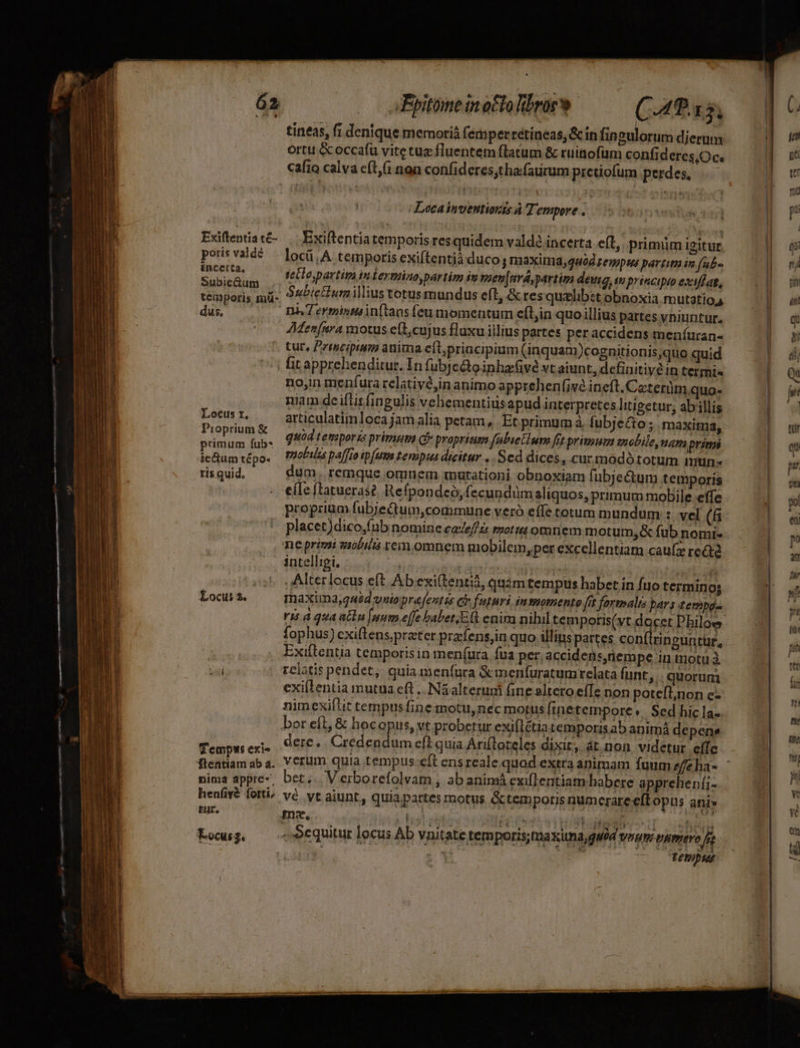 62 Epitome in octo libros CAP. 13.
tineas, si denique memoriâ semper retineas, & in singulorum dierum
ortu & occasu vitę tuæ fluentem statum & ruinosum consideres, Oc-
casio calva est, si non consideres, thæsaurum pretiosum perdes.
Loca inventionis à Tempore.
Existentia tē-
poris valdè
incerta.
Existentia temporis res quidem valdè incerta est, primùm igitur
locū, A temporis existentiâ duco; maxima, quòd tempus partim in sub-
iecto, partim in termino, partim in mensurâ, partim deniq, in principio existat,
Subiectum
temporis mū-
dus.
Subiectum illius totus mundus est, & res quælibet obnoxia mutatio-
ni, Terminus instans seu momentum est, in quo illius partes vniuntur.
Mensura motus est, cujus fluxu illius partes per accidens mensuran-
tur. Principium anima est, principium (inquam) cognitionis, quo quid
fit apprehenditur. In subjecto inhæsivè vt aiunt, definitivè in termi-
no, in mensura relativè, in animo apprehensivè inest. Cæterùm quo-
niam de istis singulis vehementiùs apud interpretes litigetur, ab illis
Locus 1.
Proprium &
primum sub-
iectum tēpo-
ris quid.
articulatim loca jam alia petam. Et primum à subjecto; maxima,
quòd temporis primum & proprium subiectum sit primum mobile, nam primi
mobilis passio ipsum tempus dicitur. Sed dices, cur modò totum mun-
dum, remque omnem mutationi obnoxiam subjectum temporis
esse statueras? Respondeò, secundùm aliquos, primum mobile esse
proprium subjectum, commune verò esse totum mundum: vel (si
placet) dico, sub nomine cælestis motus omnem motum, & sub nomi-
ne primi mobilis rem omnem mobilem, per excellentiam causæ rectè
intelligi.
Locus 2.
Alter locus est Ab existentiâ, quàm tempus habet in suo termino;
maxima, quòd unio præsentis & futuri in momento sit formalis pars tempo-
ris à qua actu suum esse habet, Est enim nihil temporis (vt docet Philo-
sophus) existens, præter præsens, in quo illius partes constringuntur.
Existentia temporis in mensura sua per accidens, nempe in motu à
relatis pendet, quia mensura & mensuratum relata sunt, quorum
existentia mutua est. Nā alterum sine altero esse non potest, non e-
nim existit tempus sine motu, nec motus sine tempore. Sed hic la-
bor est, & hoc opus, vt probetur existētia temporis ab animâ depen-
Tempus exi-
stentiam ab a-
nima appre-
hensivè sorti-
tur.
dere. Credendum est quia Aristoteles dixit, at non videtur esse
verum quia tempus est ens reale quod extra animam suum esse ha-
bet. Verbo resolvam, ab animâ existentiam habere apprehensi-
vè vt aiunt, quia partes motus & temporis numerare est opus ani-
mæ.
Locus 3.
Sequitur locus Ab vnitate temporis; maxima, quòd vnum numero sit
tempus